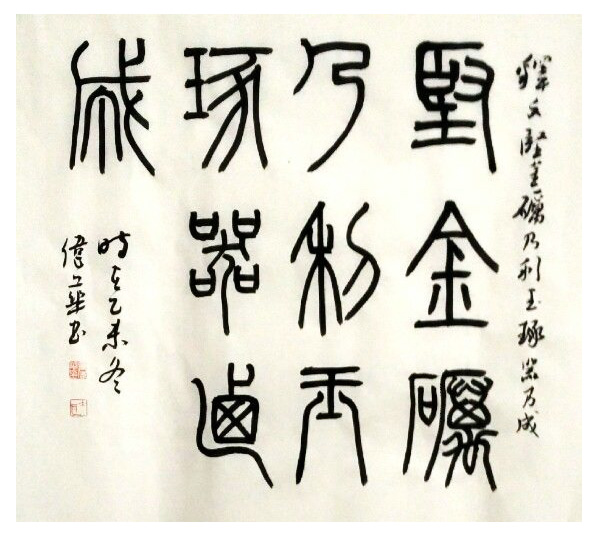 釋文堅金礪乃利玉琢器方成
堅金礪
乃利玉
琢器迺
成
時在乙未冬
偉華書